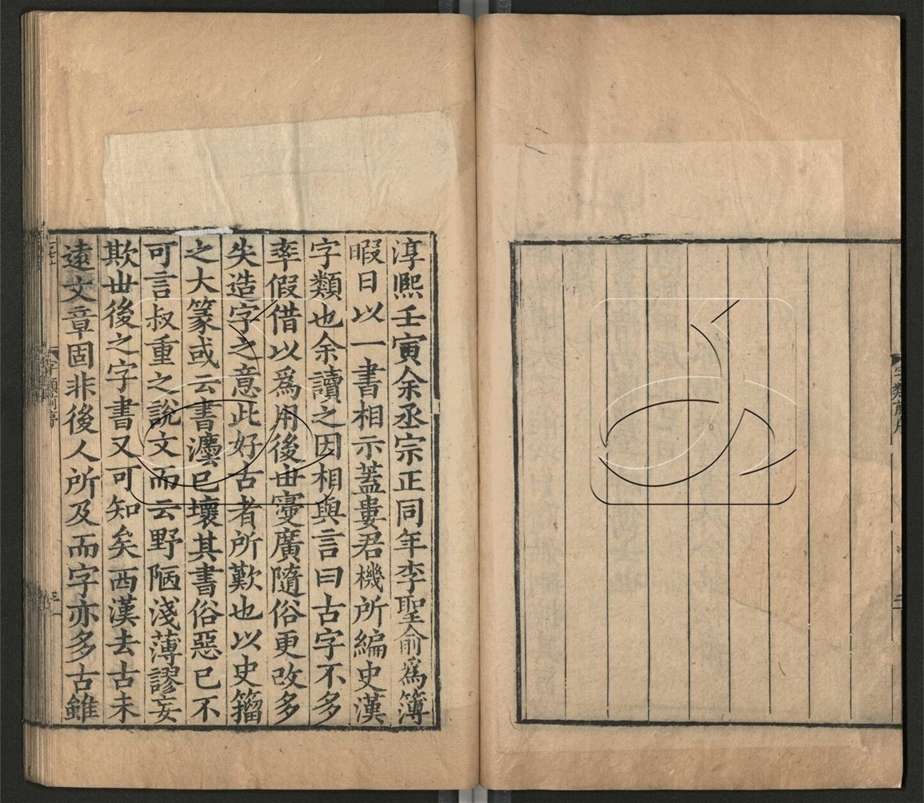 字類前序
淳熙壬寅余丞宗正同年李聖俞爲簿
暇日以一書相示蓋婁君機所編史漢
字類也余讀之因相與言曰古字不多
率假借以爲用後丗寖廣隨俗更改多
失造字之意此好古者所歎也以史籀
之大篆或云書灋已壞其書俗惡已不
可言叔重之說文而云野陋淺薄謬妄
欺丗後之字書又可知矣西漢去古未
遠文章固非後人所及而字亦多古雖
字類前序